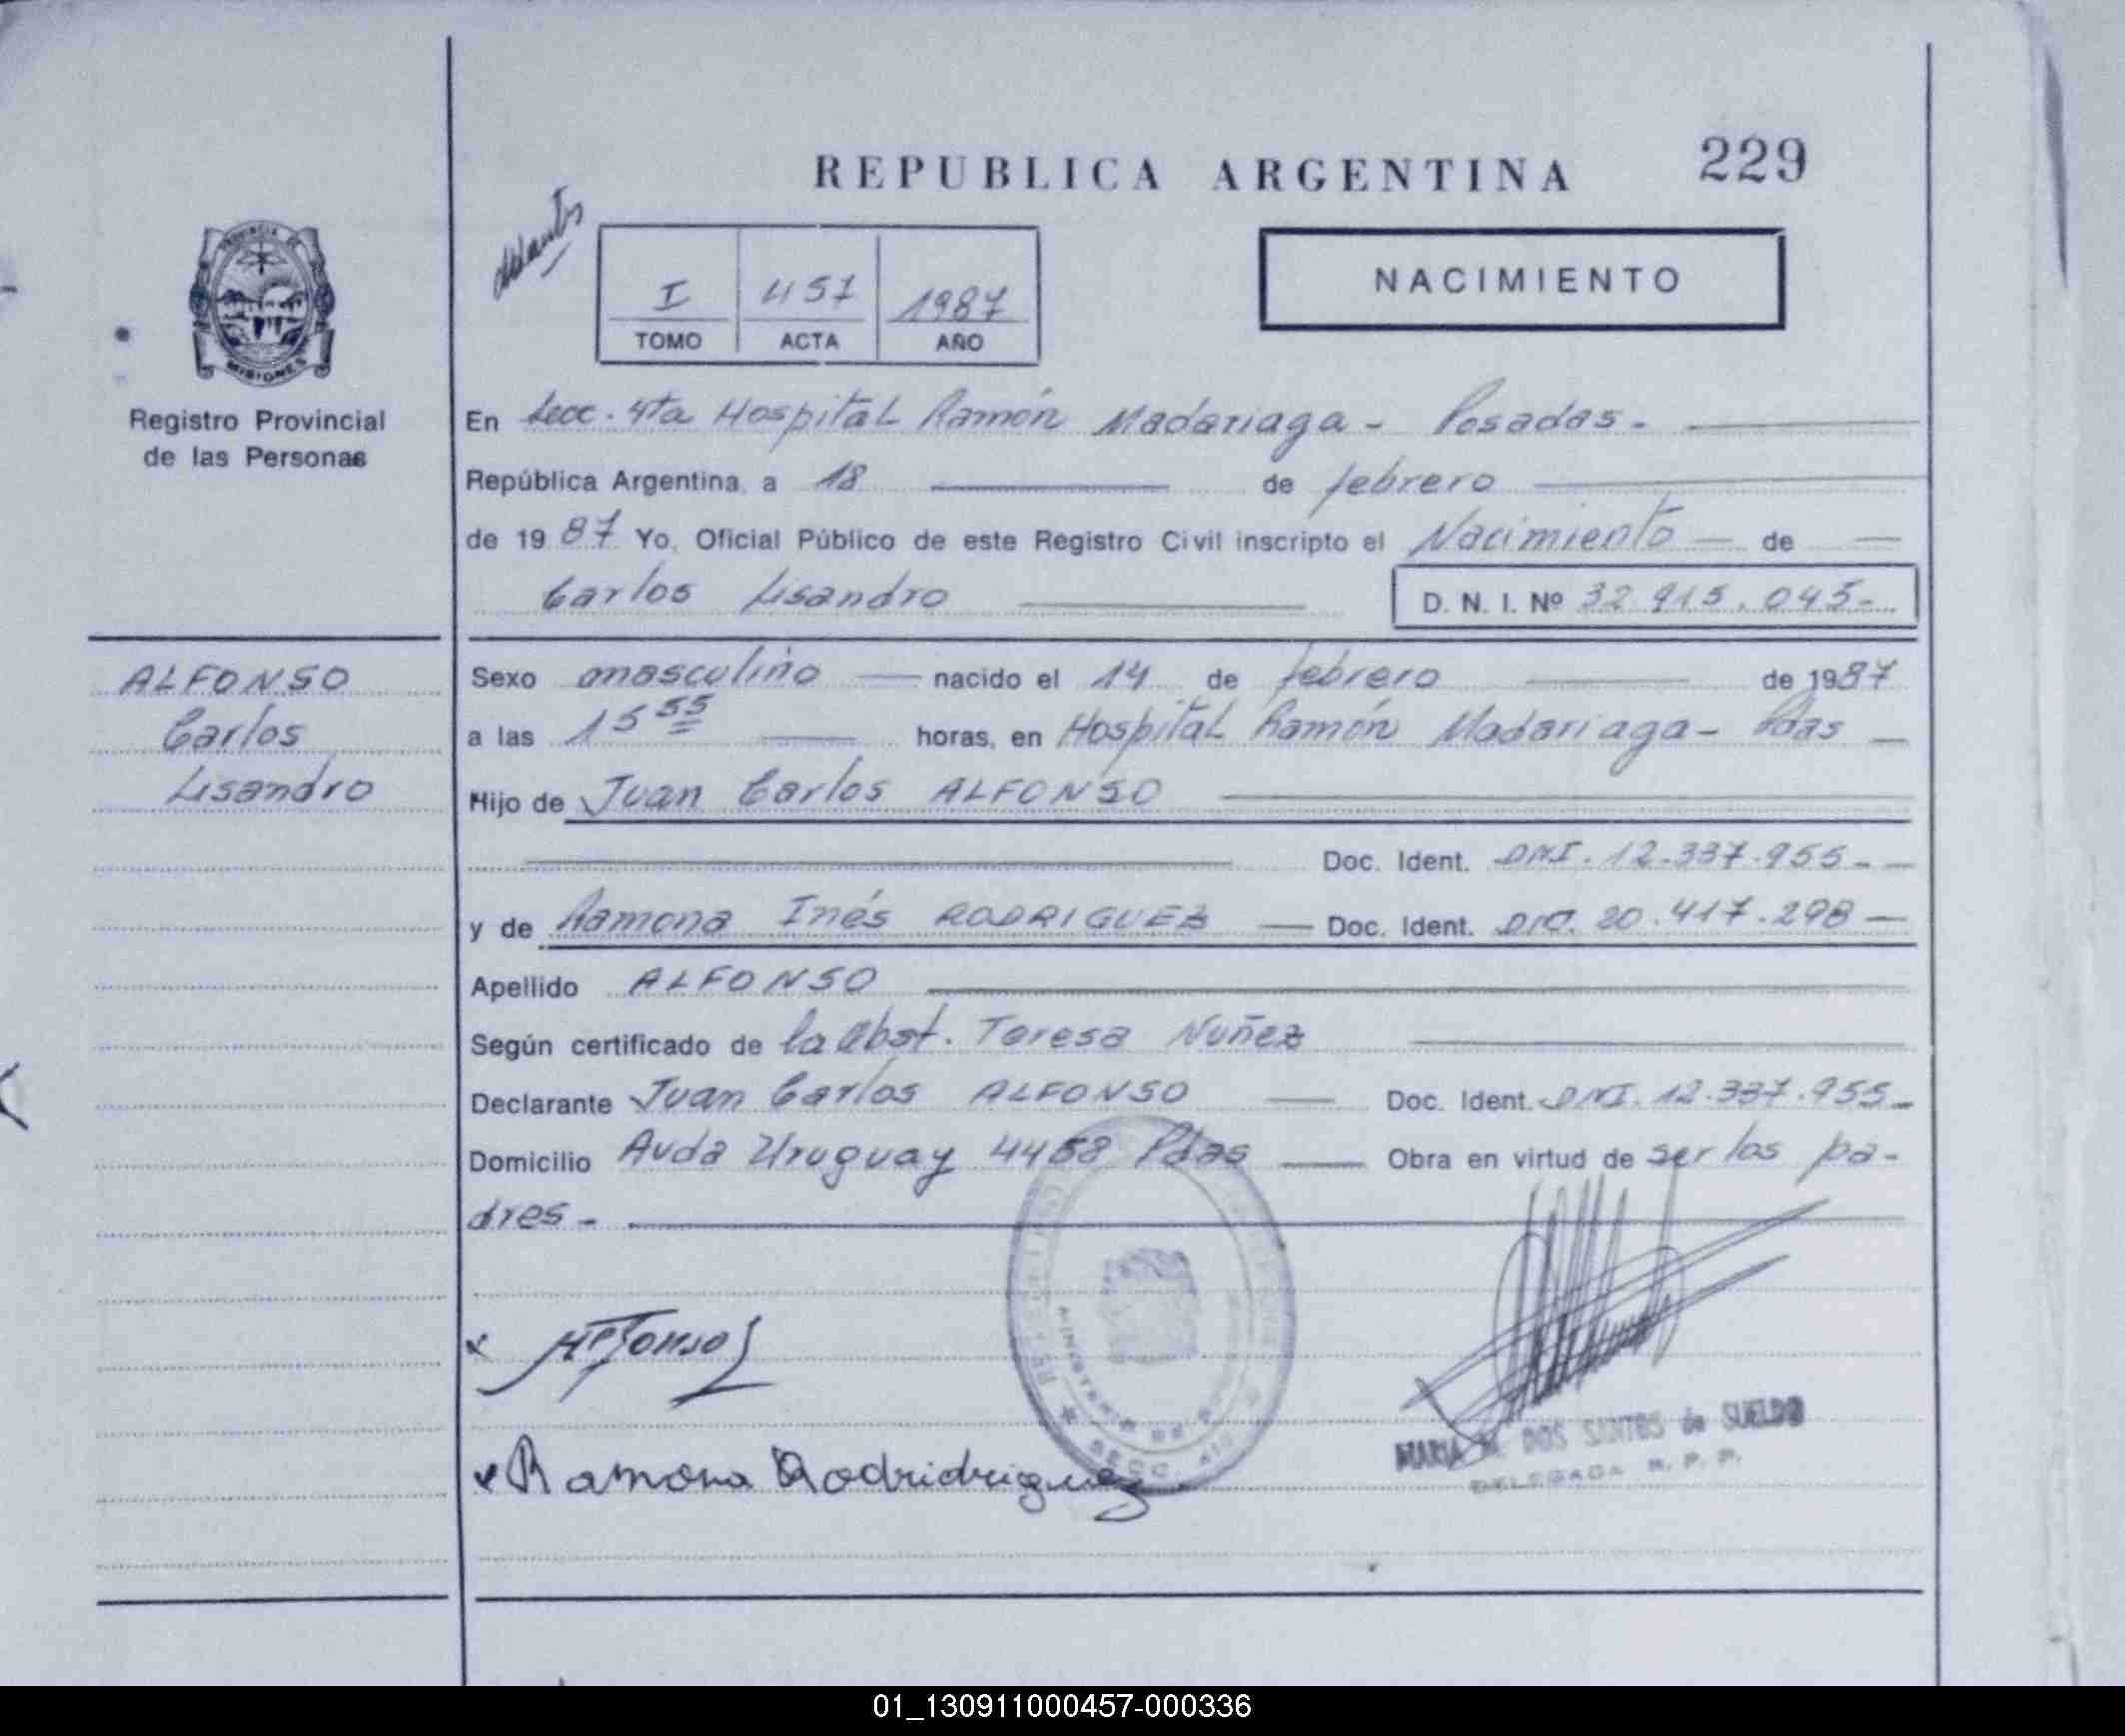 REPUBLICA ARGENTINA
229
I
451
1987
TOMO
ACTA
AÑO
NACIMIENTO
PROVINCIA DE
MISIONES
Registro Provincial
de las Personas
En Secc. 4ta Hospital Ramón Madariaga - Posadas.
República Argentina, a 18 de febrero
de 1987 Yo, Oficial Público de este Registro Civil inscripto el Nacimiento de
Carlos Lisandro
D. N. I. Nº 32 915.045-
ALFONSO
Carlos
Lisandro
Sexo masculino nacido el 14 de febrero de 1987
a las 15 55 horas, en Hospital Ramón Madariaga - Pdas
Hijo de Juan Carlos ALFONSO
Doc. Ident. DNI. 12.337.955-
y de Ramona Inés RODRIGUEZ Doc. Ident. 20.417.298
Apellido ALFONSO
Según certificado de la Obst. Teresa Nuñez
Declarante Juan Carlos ALFONSO Doc. Ident. DNI. 12.337.955-
Domicilio Avda Uruguay 4458 Pdas Obra en virtud de ser los pa-
dres -
x Alfonso
x Ramona Rodridriguez
MINISTERIO DE
SECC. 4ta
MARIA DOS SANTOS de SUELDO
DELEGADA R. P. P.
01_130911000457-000336